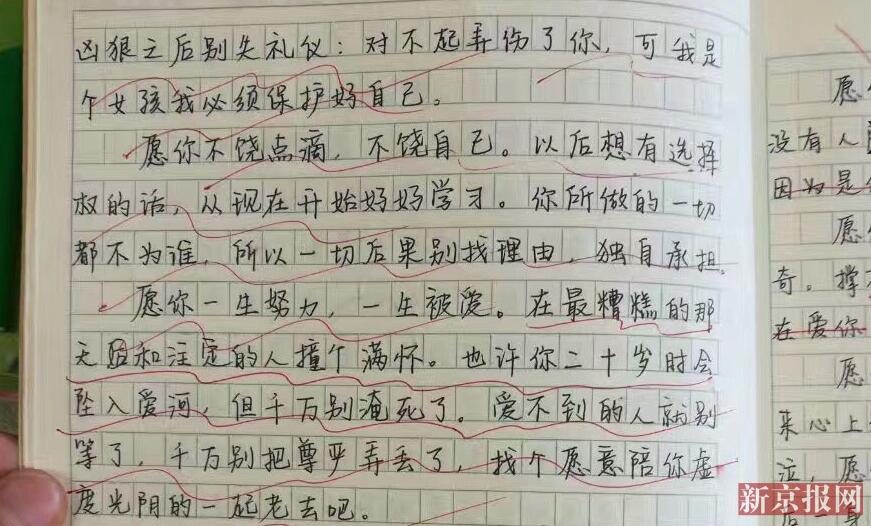 凶狠之后别失礼仪：对不起弄伤了你，可我是
个女孩我必须保护好自己。
愿你不饶点滴，不饶自己。以后想有选择
权的话，从现在开始好好学习。你所做的一切
都不为谁，所以一切后果别找理由，独自承担。
愿你一生努力，一生被爱。在最糟糕的那
天恰和注定的人撞个满怀。也许你二十岁时会
坠入爱河，但千万别淹死了。爱不到的人就别
等了，千万别把尊严弄丢了，找个愿意陪你虚
度光阴的一起老去吧。
愿
没有人
因为是
愿
奇。撑
在爱你
愿
来心上
泣，愿
后
新京报网